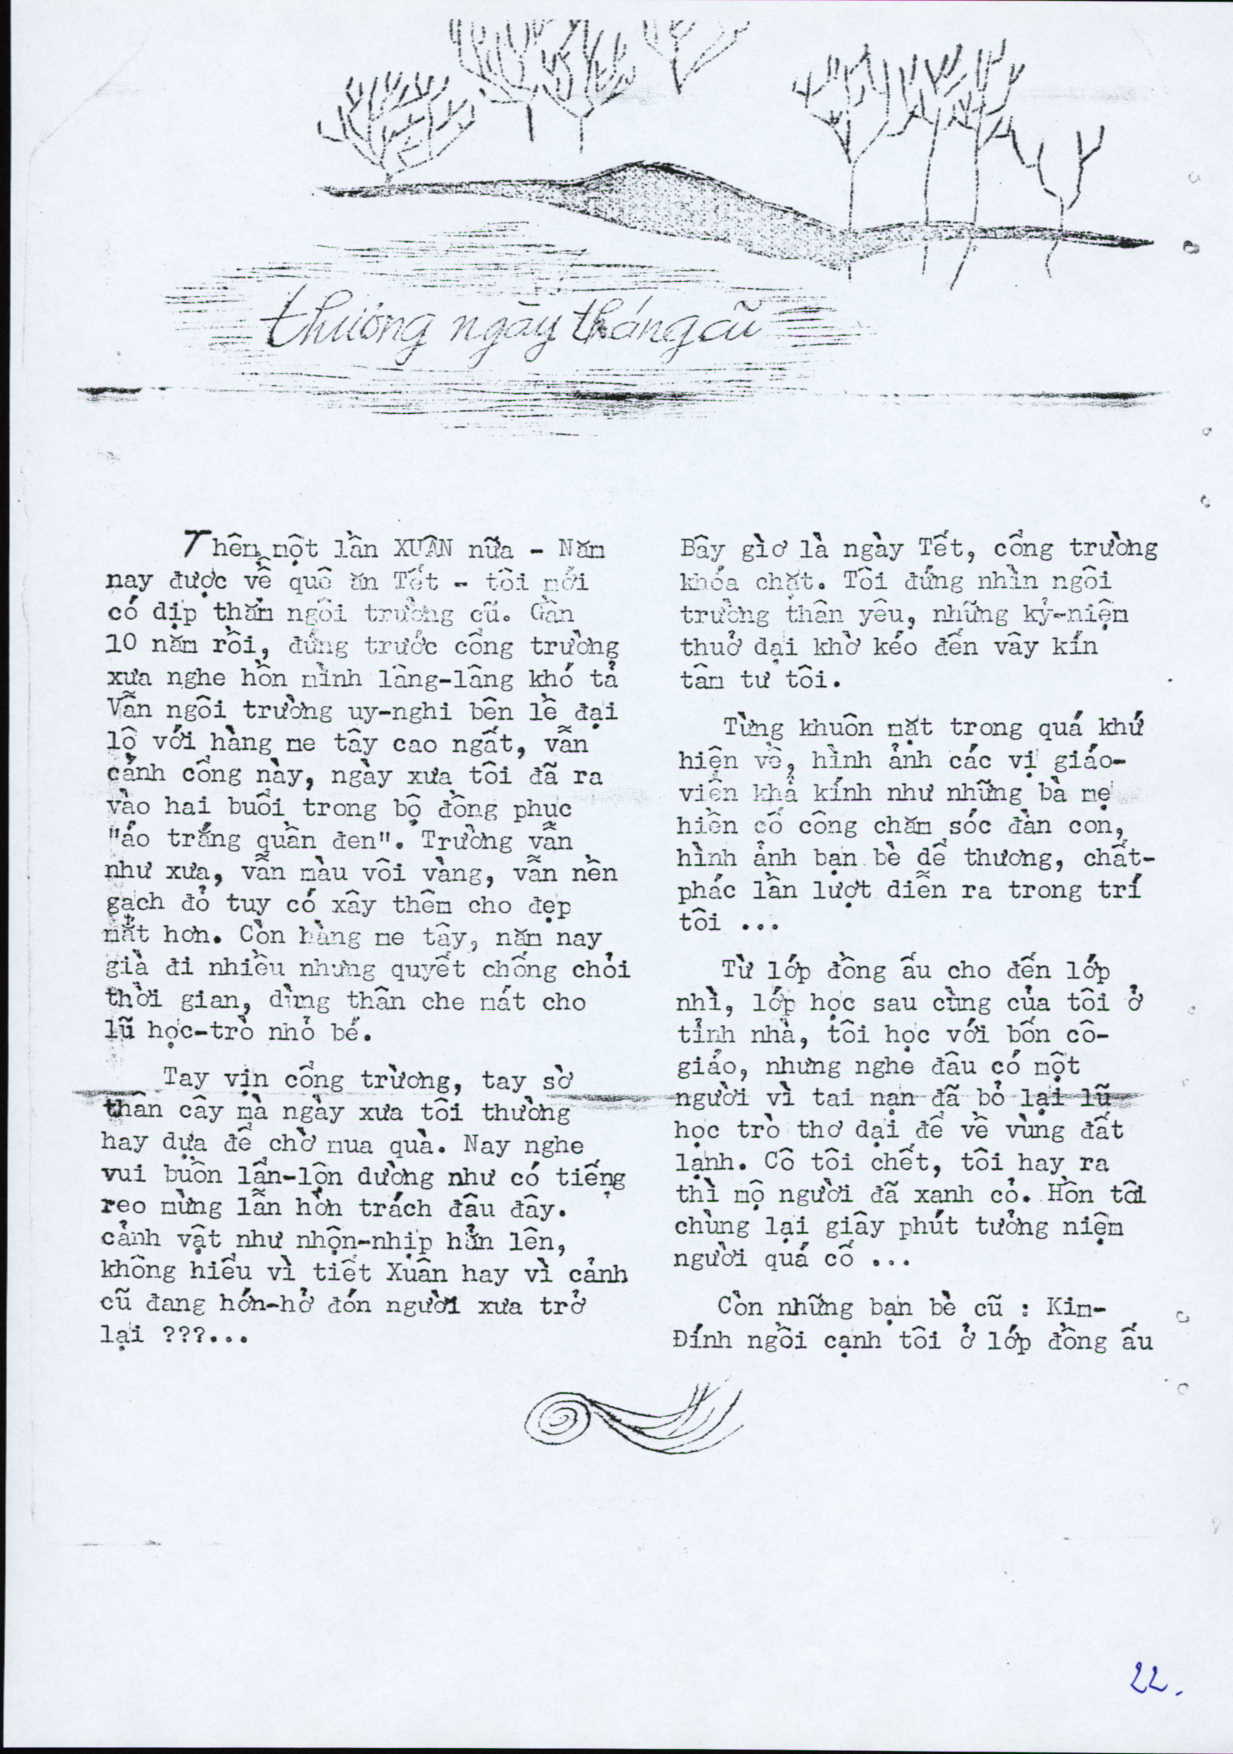 thương ngày tháng cũ
Thêm một lần XUÂN nữa - Năm
nay được về quê ăn Tết - tôi mới
có dịp thăm ngôi trường cũ. Gần
10 năm rồi, đứng trước cổng trường
xưa nghe hồn mình lâng-lâng khó tả
Vẫn ngôi trường uy-nghi bên lề đại
lộ với hàng me tây cao ngất, vẫn
cánh cổng này, ngày xưa tôi đã ra
vào hai buổi trong bộ đồng phục
"áo trắng quần đen". Trường vẫn
như xưa, vẫn màu vôi vàng, vẫn nền
gạch đỏ tuy có xây thêm cho đẹp
mắt hơn. Còn hàng me tây, năm nay
già đi nhiều nhưng quyết chống chỏi
thời gian, dùng thân che mát cho
lũ học-trò nhỏ bé.
Tay vịn cổng trường, tay sờ
thân cây mà ngày xưa tôi thường
hay dựa để chờ mua quà. Nay nghe
vui buồn lẫn-lộn dường như có tiếng
reo mừng lẫn hờn trách đâu đây.
cảnh vật như nhộn-nhịp hẳn lên,
không hiểu vì tiết Xuân hay vì cảnh
cũ đang hớn-hở đón người xưa trở
lại ???...
Bây giờ là ngày Tết, cổng trường
khóa chặt. Tôi đứng nhìn ngôi
trường thân yêu, những kỷ-niệm
thuở dại khờ kéo đến vây kín
tâm tư tôi.
Từng khuôn mặt trong quá khứ
hiện về, hình ảnh các vị giáo-
viên khả kính như những bà mẹ
hiền cố công chăm sóc đàn con,
hình ảnh bạn bè dễ thương, chất-
phác lần lượt diễn ra trong trí
tôi ...
Từ lớp đồng ấu cho đến lớp
nhì, lớp học sau cùng của tôi ở
tỉnh nhà, tôi học với bốn cô-
giáo, nhưng nghe đâu có một
người vì tai nạn đã bỏ lại lũ
học trò thơ dại để về vùng đất
lạnh. Cô tôi chết, tôi hay ra
thì mộ người đã xanh cỏ. Hồn tôi
chùng lại giây phút tưởng niệm
người quá cố ...
Còn những bạn bè cũ : Kim-
Đính ngồi cạnh tôi ở lớp đồng ấu
22.